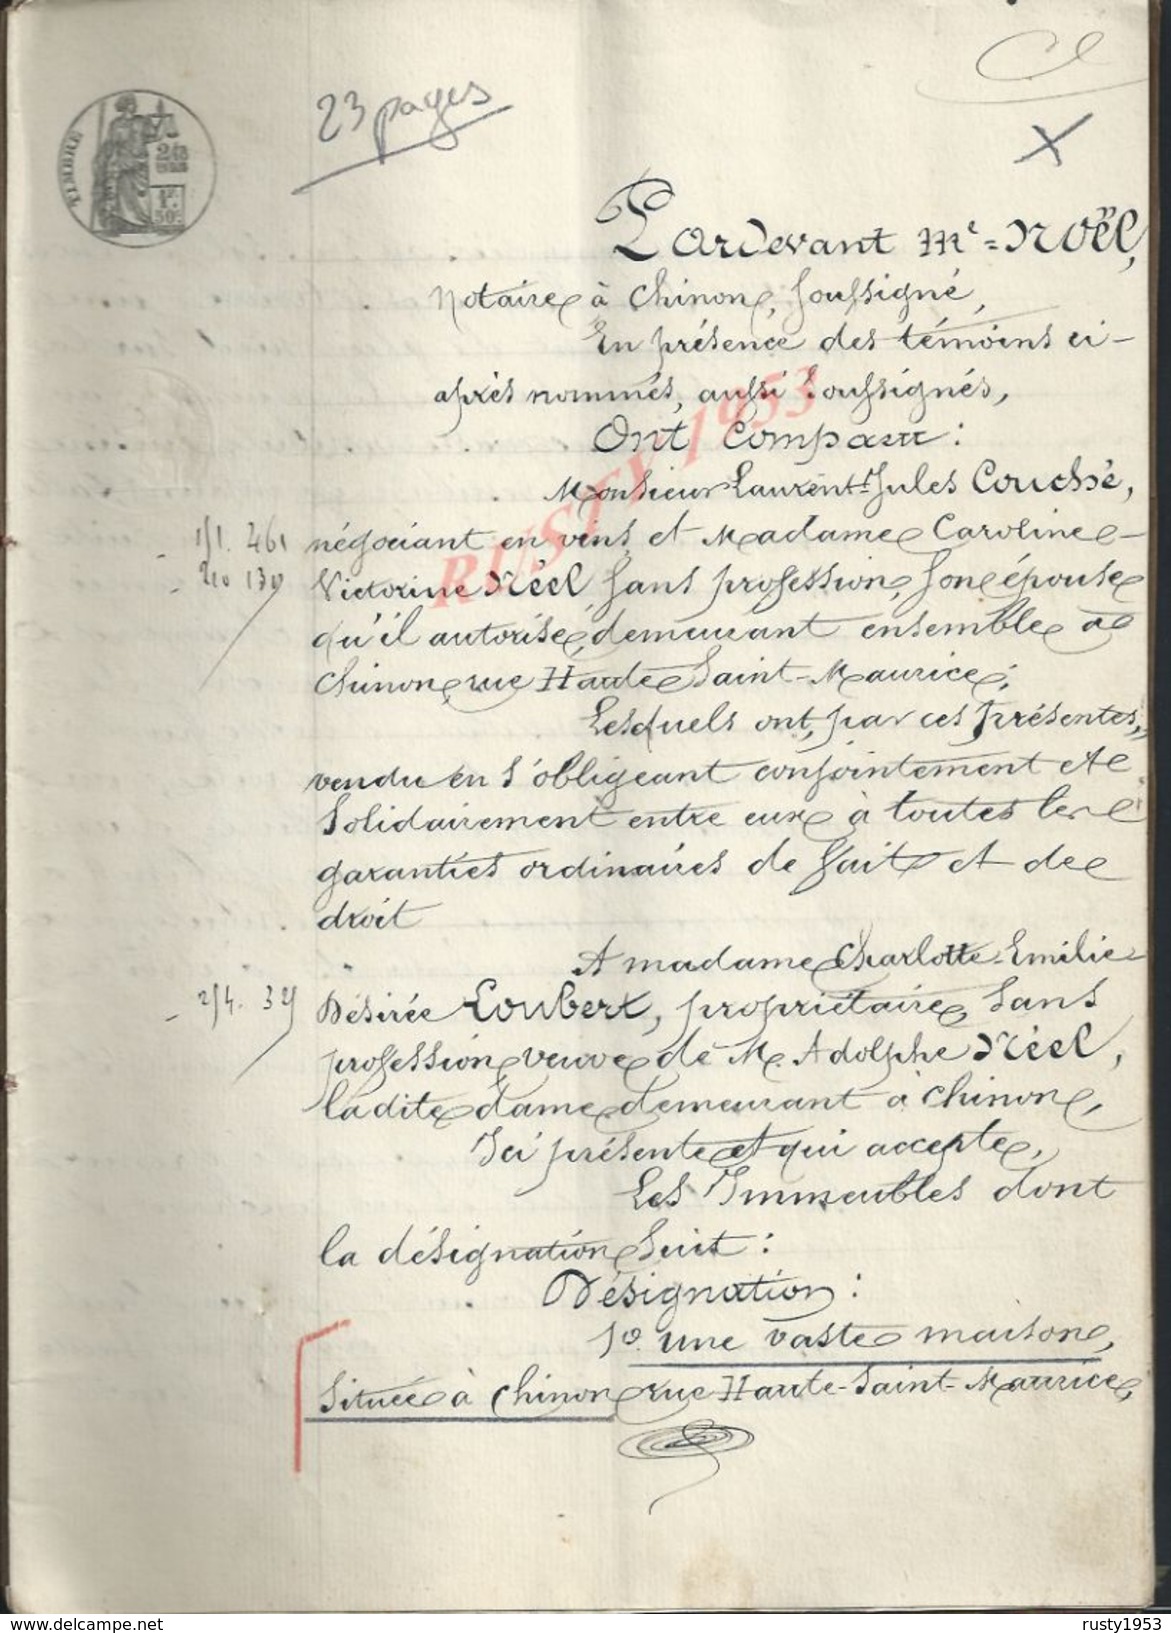 23 pages
TIMBRE
Pardevant Me = Noël,
Notaire à Chinon, soussigné,
En présence des témoins ci-
après nommés, aussi soussignés,
Ont comparu :
Monsieur Laurent-Jules Couché,
négociant en vins et Madame Caroline
Victorine Réel sans profession, son épouse
qu'il autorise, demeurant ensemble à
Chinon, rue Haute Saint-Maurice;
Lesquels ont, par ces présentes,
vendu en s'obligeant conjointement et
solidairement entre eux à toutes les
garanties ordinaires de fait et de
droit
A madame Charlotte-Emilie
Désirée Loubert, propriétaire, sans
profession, veuve de M. Adolphe Réel,
ladite dame demeurant à Chinon,
Ici présente et qui accepte,
Les Immeubles dont
la désignation suit :
Désignation :
1º. une vaste maison,
Située à Chinon rue Haute-Saint-Maurice,
RUSTY 1953
https://www.delcampe.net
rusty1953